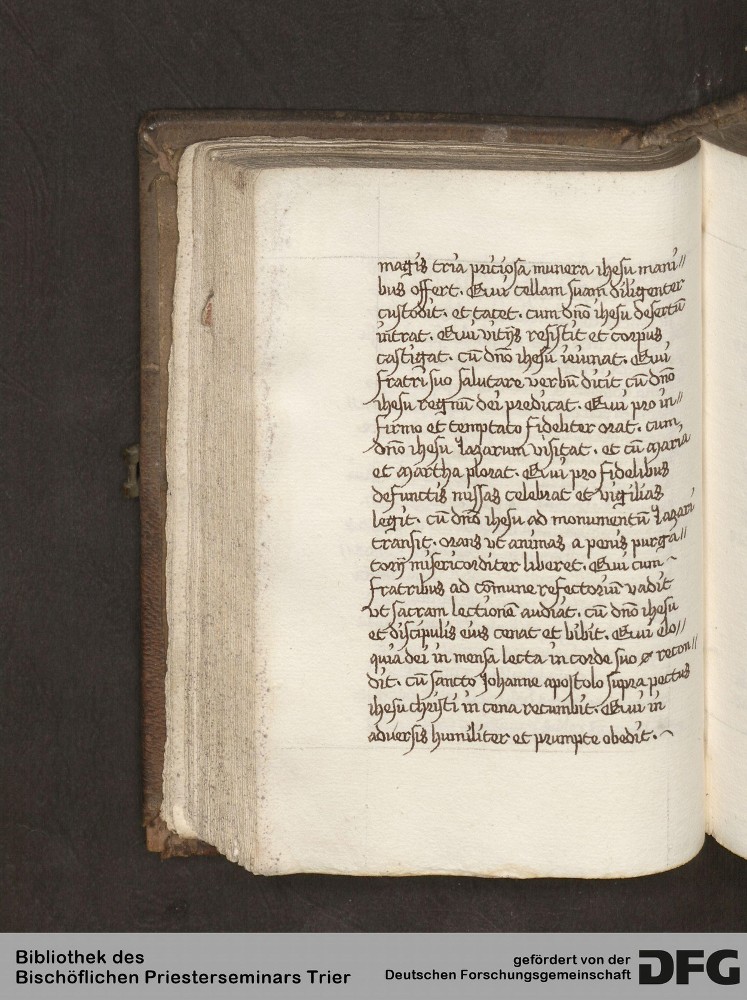 magis tria priciosa munera ihesu mani//
bus offert. Qui cellam suam diligenter
custodit. et tacet. cum dn̄o ihesu desertū
intrat. Qui vitijs resistit et corpus
castigat. cū dn̄o ihesu ieiunat. Qui
fratri suo salutare verbū dicit cū dn̄o
ihesu regnū dei predicat. Qui pro in//
firmo et temptato fideliter orat. cum
dn̄o ihesu lazarum visitat. et cū maria
et martha plorat. Qui pro fidelibus
defunctis missas celebrat et vigilias
legit. cū dn̄o ihesu ad monumentū lazari
transit. orans vt animas a penis purga//
torij misericorditer liberet. Qui cum
fratribus ad cōmune refectoriū vadit
vt sacram lectionē audiat. cū dn̄o ihesu
et discipulis eius cenat et bibit. Qui elo//
quia dei in mensa lecta in corde suo recon//
dit. cū sancto Johanne apostolo supra pectus
ihesu christi in cena recumbit. Qui in
aduersis humiliter et prumpte obedit.
Bibliothek des
Bischöflichen Priesterseminars Trier
gefördert von der
Deutschen Forschungsgemeinschaft
DFG